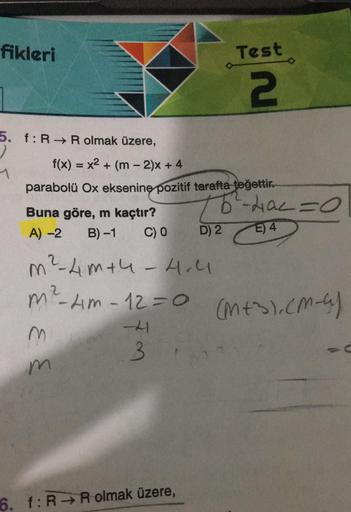 fikleri
Test
2
5. f : R → R olmak üzere,
f(x) = x² + (m – 2)x + 4
parabolü Ox eksenine pozitif tarafta teğettir.
b²-4ac=0
Buna göre, m kaçtır?
A) –2 B) –1 C) 0 D) 2 E) 4
m²-4m+4-4.4
m²-4m-12=0 (m+3).(m-4)
m -4
m 3
6. f : R → R olmak üzere,